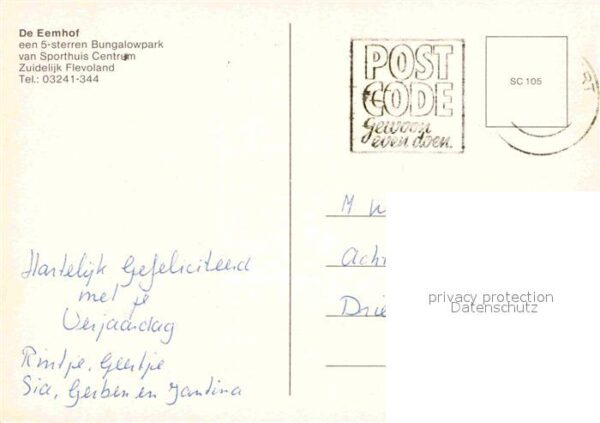 De Eemhof
een 5-sterren Bungalowpark
van Sporthuis Centrum
Zuidelijk Flevoland
Tel.: 03241-344
POST
CODE
gewoon
even doen.
SC 105
M
Acht
Drie
privacy protection
Datenschutz
Hartelijk Gefeliciteerd
met je
Verjaardag
Rintje, Geertje
Sia, Gerben en Jantina